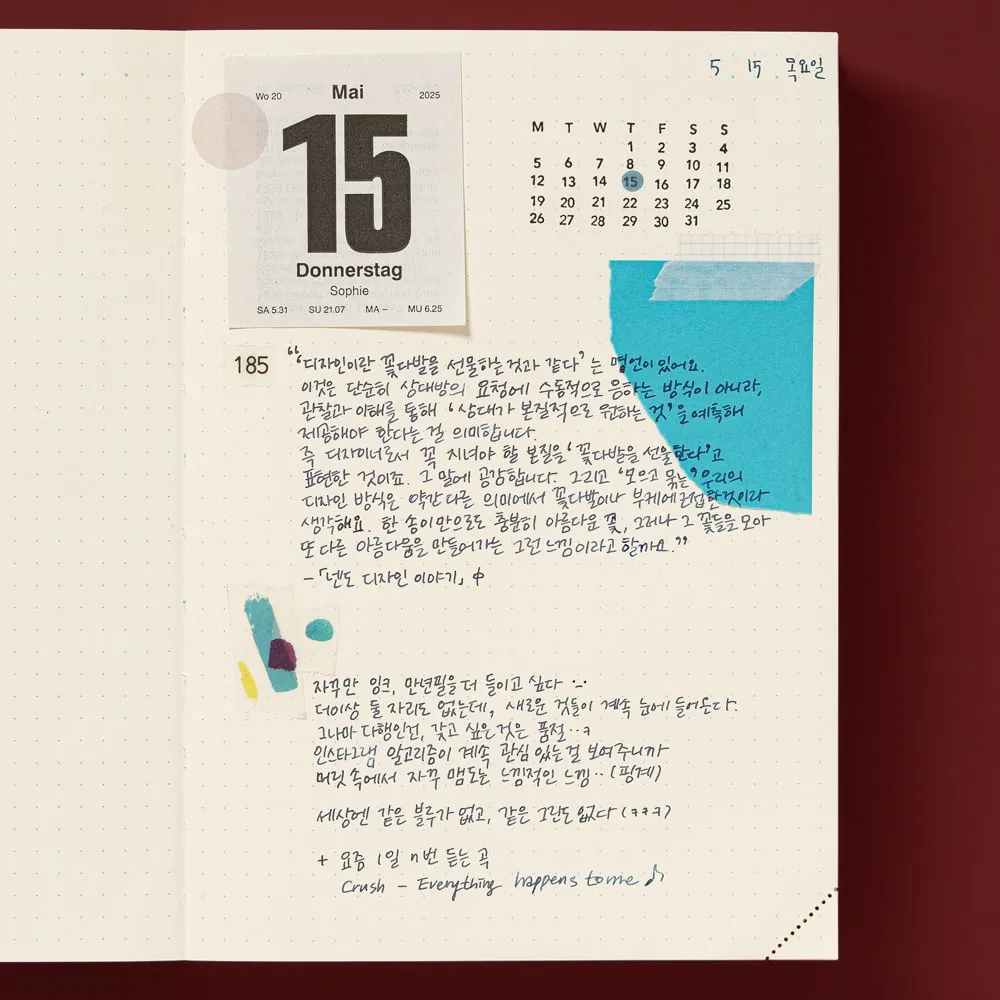 5. 15 목요일
Wo 20 Mai 2025
15
Donnerstag
Sophie
SA 5.31 SU 21.07 MA – MU 6.25
M T W T F S S
1 2 3 4
5 6 7 8 9 10 11
12 13 14 15 16 17 18
19 20 21 22 23 24 25
26 27 28 29 30 31
185
“‘디자인이란 꽃다발을 선물하는 것과 같다’는 명언이 있어요.
이것은 단순히 상대방의 요청에 수동적으로 응하는 방식이 아니라,
관찰과 이해를 통해 ‘상대가 본질적으로 원하는 것’을 예측해
제공해야 한다는 걸 의미합니다.
즉 디자이너로서 꼭 지녀야 할 본질을 ‘꽃다발을 선물한다’고
표현한 것이죠. 그 말에 공감합니다. 그리고 ‘모으고 묶는’ 우리의
디자인 방식은 약간 다른 의미에서 꽃다발이나 부케에 근접한 것이라
생각해요. 한 송이만으로도 충분히 아름다운 꽃, 그러나 그 꽃들을 모아
또 다른 아름다움을 만들어가는 그런 느낌이라고 할까요.”
–「넨도 디자인 이야기」
자꾸만 잉크, 만년필을 더 들이고 싶다
더이상 둘 자리도 없는데, 새로운 것들이 계속 눈에 들어온다.
그나마 다행인건, 갖고 싶은 것은 품절..ㅋ
인스타그램 알고리즘이 계속 관심있는 걸 보여주니까
머릿속에서 자꾸 맴도는 느낌적인 느낌.. (핑계)
세상엔 같은 블루가 없고, 같은 그린도 없다 (ㅋㅋㅋ)
+ 요즘 1일 n번 듣는 곡
Crush – Everything happens to me ♪